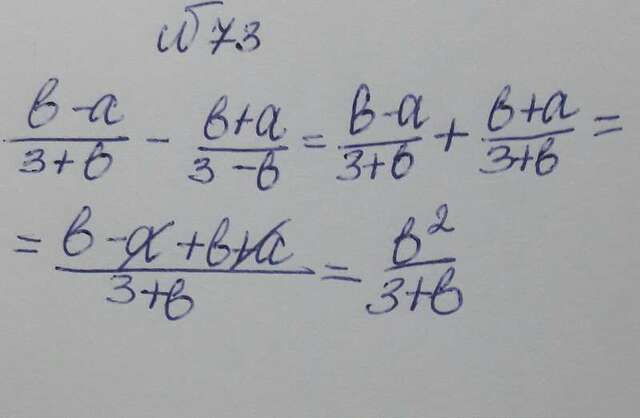 № 73
(в-а)/(3+в) - (в+а)/(3-в) = (в-а)/(3+в) + (в+а)/(3+в) =
= (в-а+в+а)/(3+в) = в²/(3+в)